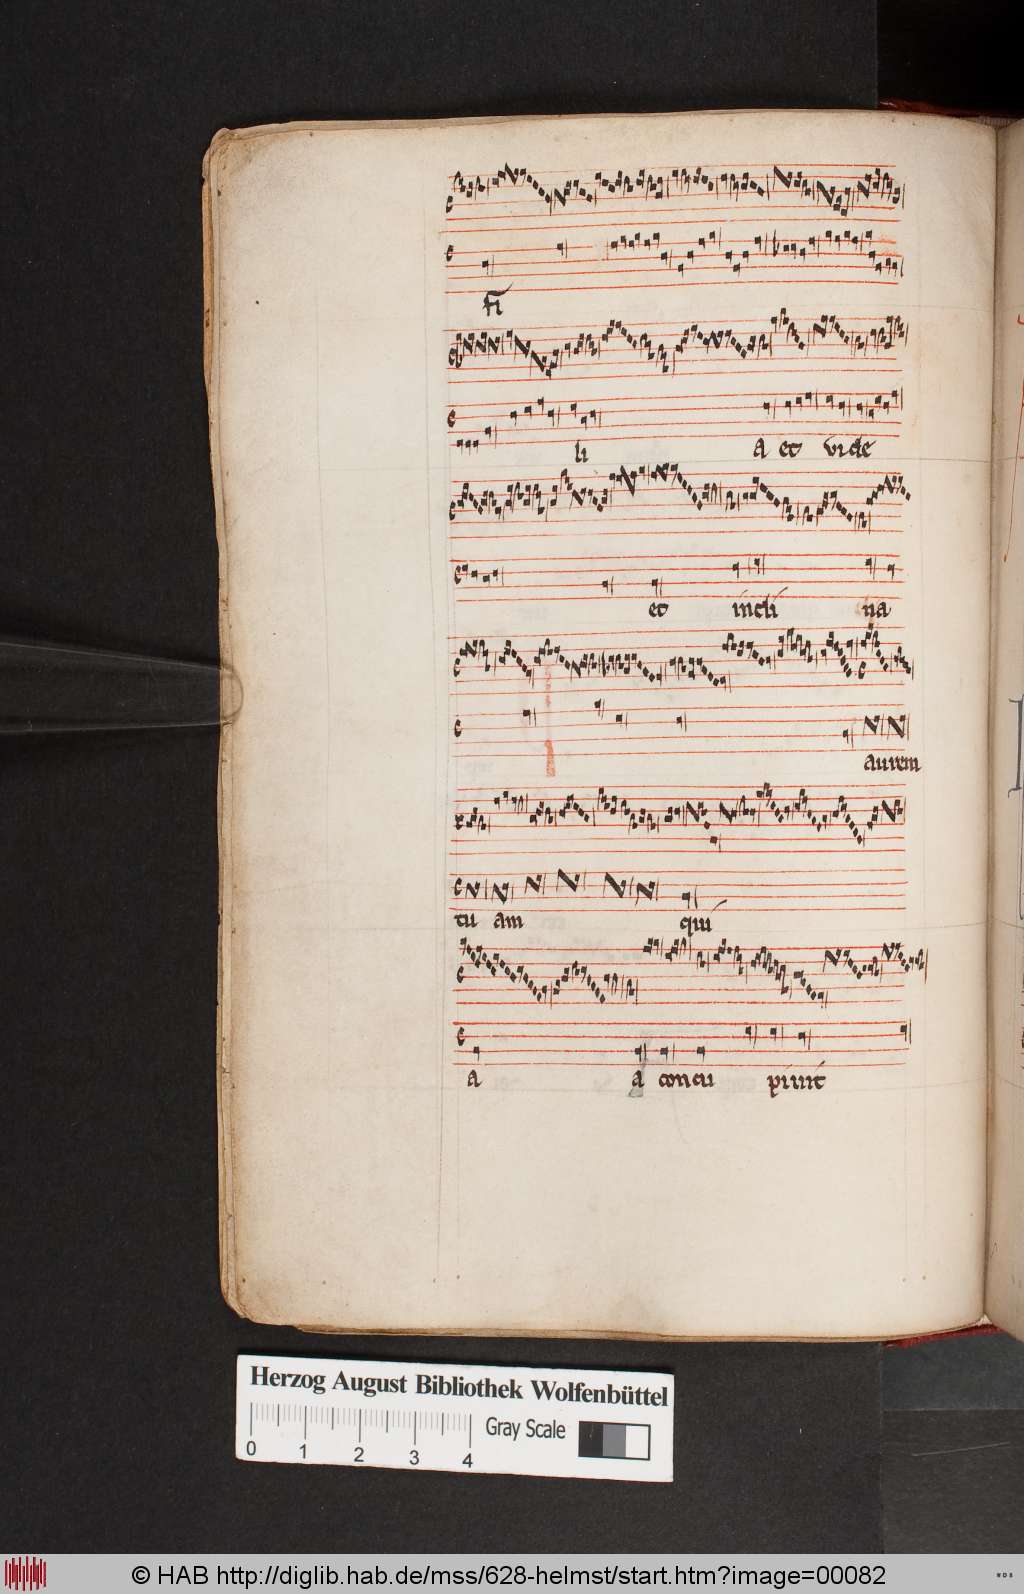 fi
li a et vide
et incli na
aurem
tu am qui
a a concu piuit
Herzog August Bibliothek Wolfenbüttel
Gray Scale
0 1 2 3 4
© HAB http://diglib.hab.de/mss/628-helmst/start.htm?image=00082